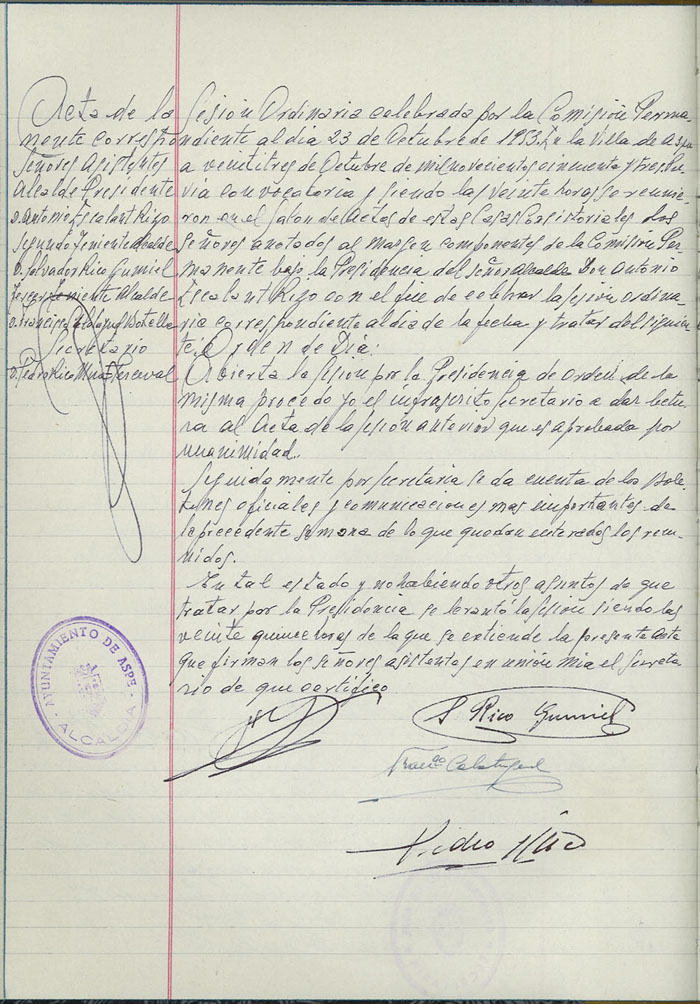 Acta de la Sesión Ordinaria celebrada por la Comisión Perma-
nente correspondiente al dia 23 de Octubre de 1953. En la Villa de Aspe
a veintitres de Octubre de mil novecientos cincuenta y tres Pre-
via convocatoria y siendo las veinte horas se reunie-
ron en el Salon de Actos de estas Casas Consistoriales los
Señores anotados al margen componentes de la Comisión Per-
manente bajo la Presidencia del señor Alcalde Don Antonio
Escalant Rizo con el fin de celebrar la sesión ordina-
ria correspondiente al dia de la fecha y tratar del siguien-
te: Orden de Dia:
Señores Asistentes
Alcalde Presidente
D. Antonio Escalant Rizo
Segundo Teniente Alcalde
D. Salvador Rico Gumiel
Tercer Teniente Alcalde
D. Francisco Calatayud Botella
Secretario
D. Pedro Rico
Abierta la sesion por la Presidencia de orden de la
misma procedo yo el infrascrito Secretario a dar lectu-
ra al Acta de la sesión anterior que es aprobada por
unanimidad.
Seguidamente por Secretaria se da cuenta de los Bole-
tines oficiales y comunicaciones mas importantes de
la precedente semana de lo que quedan enterados los reu-
nidos.
En tal estado y no habiendo otros asuntos de que
tratar por la Presidencia se levantó la sesión siendo las
veinte quince horas de la que se extiende la presente acta
que firman los señores asistentes en unión mia el Secreta-
rio de que certifico.
S Rico Gumiel
Franco Calatayud
Pedro Rico
AYUNTAMIENTO DE ASPE
ALCALDIA